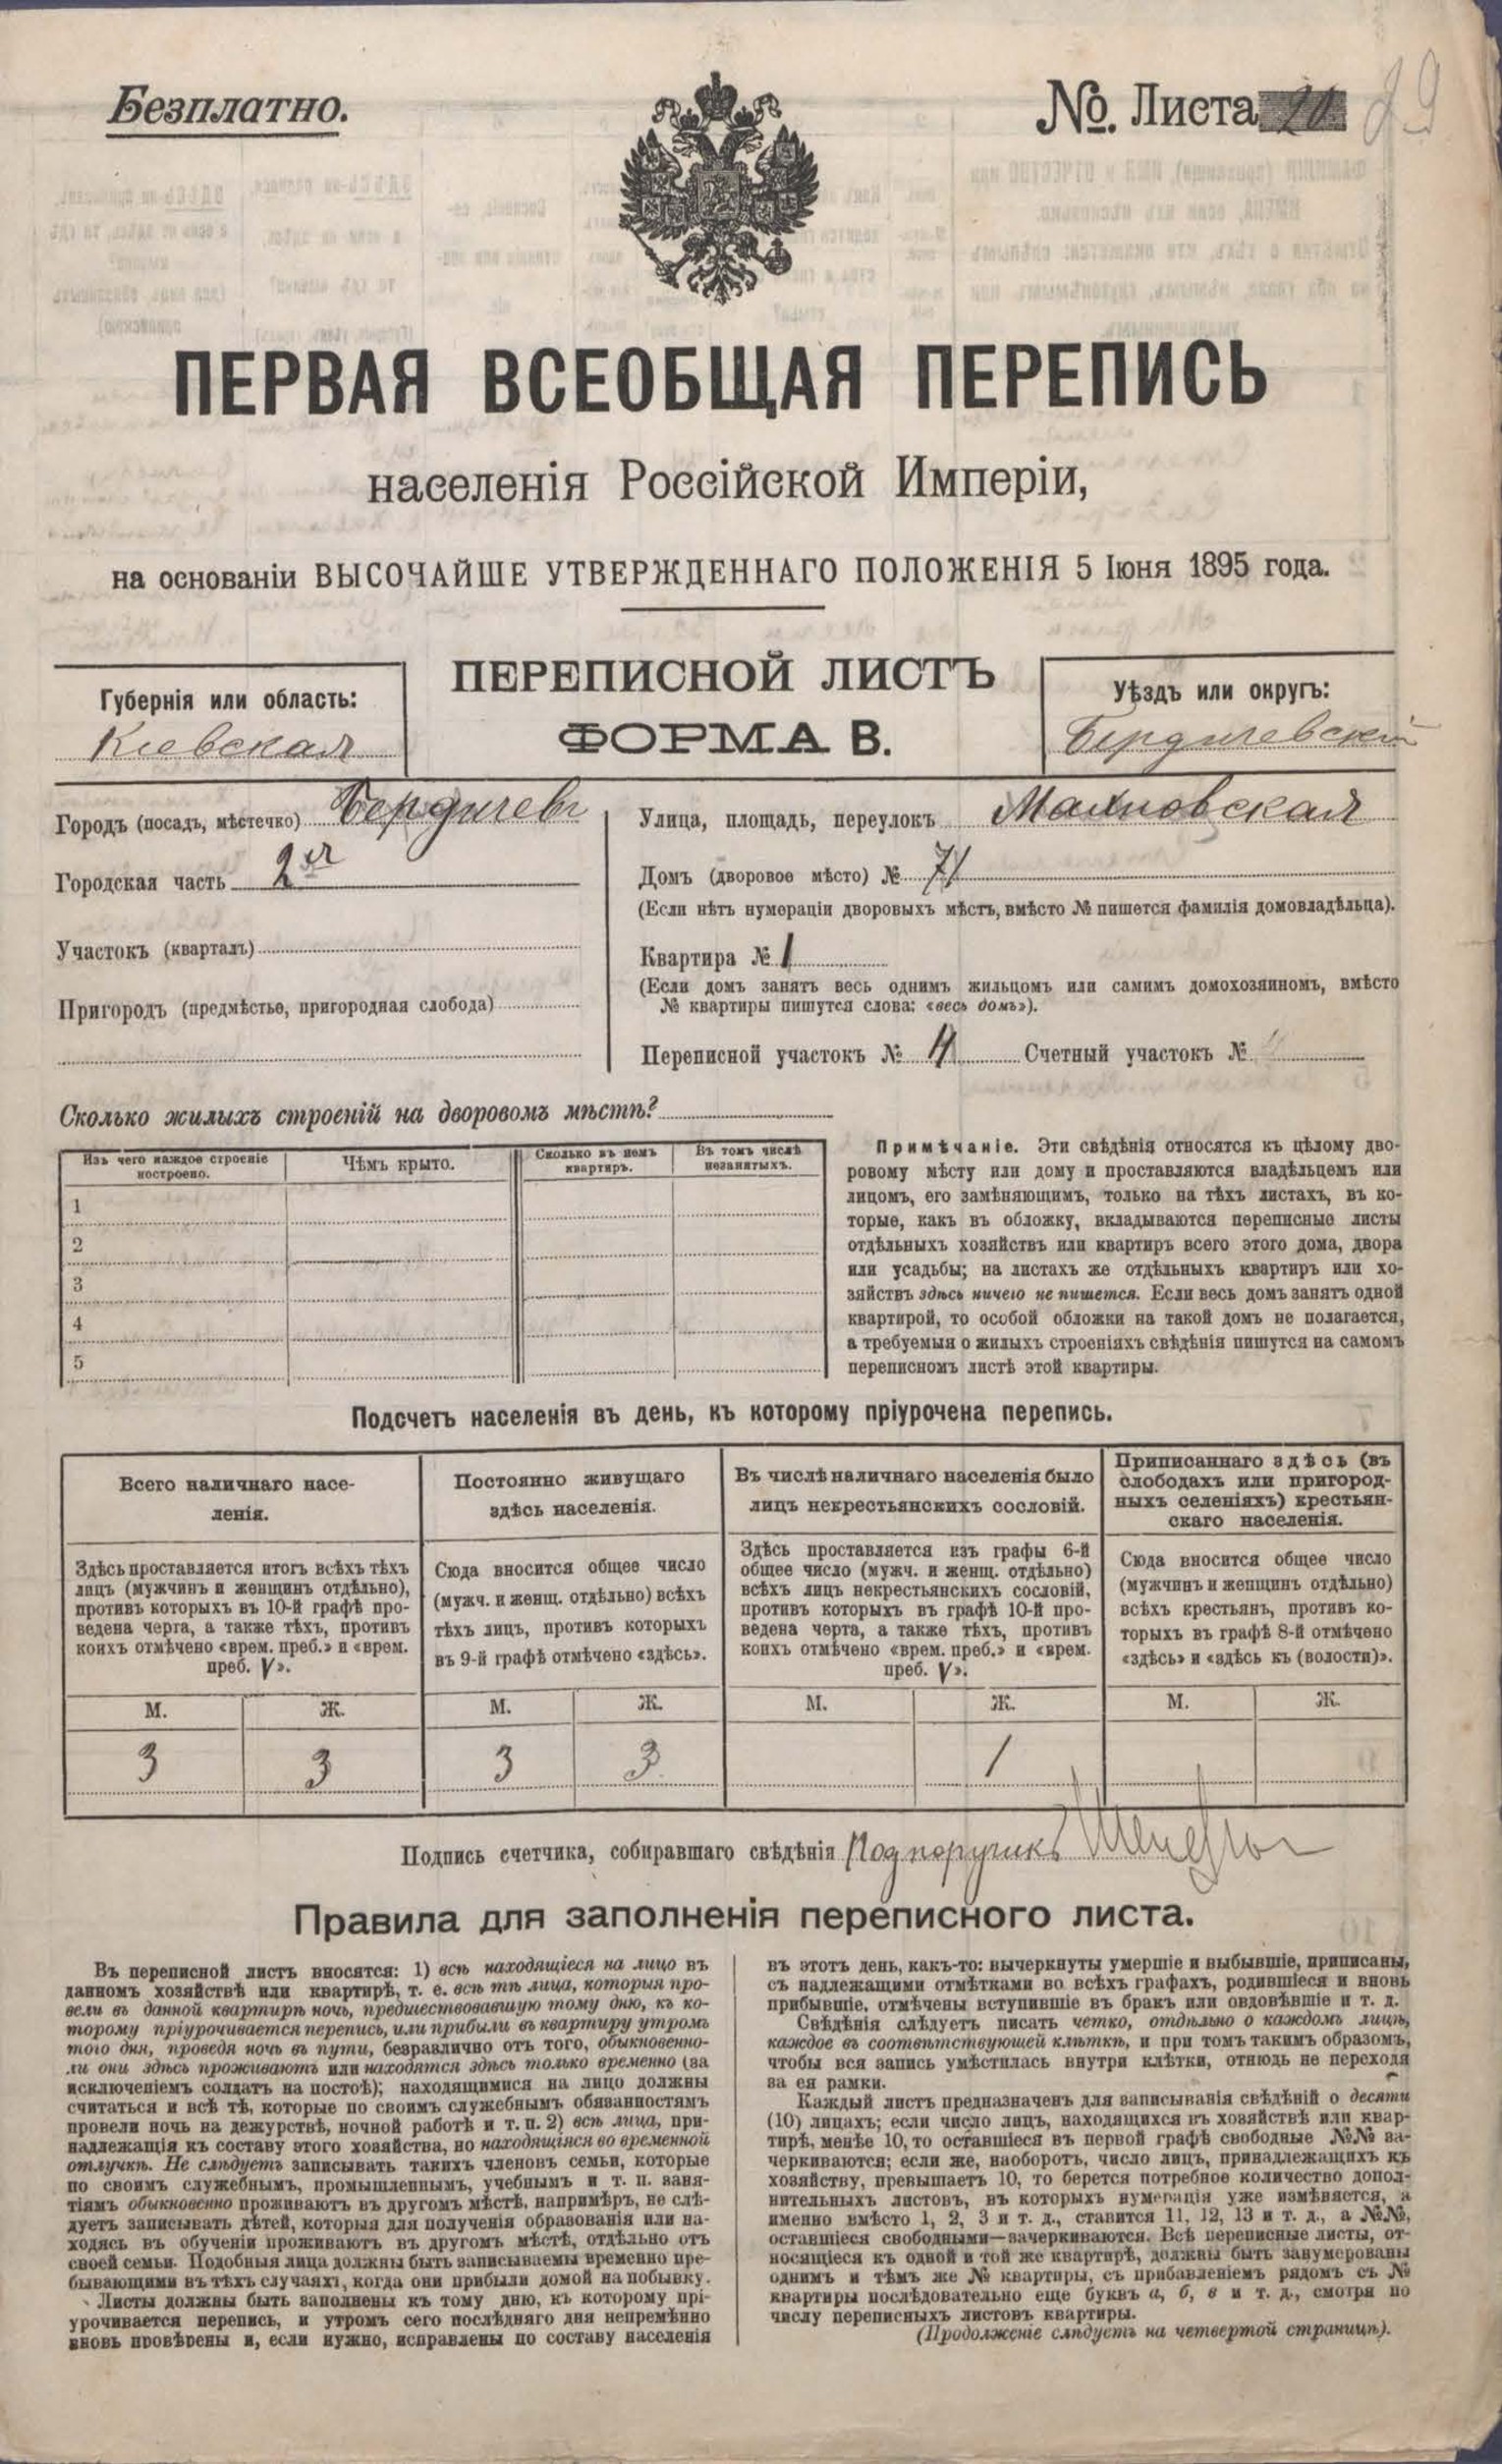 Безплатно.
№. Листа 20 89
ПЕРВАЯ ВСЕОБЩАЯ ПЕРЕПИСЬ
населенія Россійской Имперіи,
на основаніи ВЫСОЧАЙШЕ УТВЕРЖДЕННАГО ПОЛОЖЕНІЯ 5 Іюня 1895 года.
ПЕРЕПИСНОЙ ЛИСТЪ
ФОРМА В.
Губернія или область:
Кіевская
Уѣздъ или округъ:
Бердичевскій
Городъ (посадъ, мѣстечко) Бердичевъ
Городская часть 2ая
Участокъ (кварталъ)
Пригородъ (предмѣстье, пригородная слобода)
Улица, площадь, переулокъ Махновская
Домъ (дворовое мѣсто) № 71
(Если нѣтъ нумераціи дворовыхъ мѣстъ, вмѣсто № пишется фамилія домовладѣльца).
Квартира № 1
(Если домъ занятъ весь однимъ жильцомъ или самимъ домохозяиномъ, вмѣсто
№ квартиры пишутся слова: «весь домъ»).
Переписной участокъ № 4 Счетный участокъ №
Сколько жилыхъ строеній на дворовомъ мѣстѣ?
Изъ чего каждое строеніе
построено.
Чѣмъ крыто.
Сколько въ немъ
квартиръ.
Въ томъ числѣ
незанятыхъ.
1
2
3
4
5
Примѣчаніе. Эти свѣдѣнія относятся къ цѣлому дво-
ровому мѣсту или дому и проставляются владѣльцемъ или
лицомъ, его замѣняющимъ, только на тѣхъ листахъ, въ ко-
торые, какъ въ обложку, вкладываются переписные листы
отдѣльныхъ хозяйствъ или квартиръ всего этого дома, двора
или усадьбы; на листахъ же отдѣльныхъ квартиръ или хо-
зяйствъ здѣсь ничего не пишется. Если весь домъ занятъ одной
квартирой, то особой обложки на такой домъ не полагается,
а требуемыя о жилыхъ строеніяхъ свѣдѣнія пишутся на самомъ
переписномъ листѣ этой квартиры.
Подсчетъ населенія въ день, къ которому пріурочена перепись.
Всего наличнаго насе-
ленія.
Здѣсь проставляется итогъ всѣхъ тѣхъ
лицъ (мужчинъ и женщинъ отдѣльно),
противъ которыхъ въ 10-й графѣ про-
ведена черта, а также тѣхъ, противъ
коихъ отмѣчено «врем. преб.» и «врем.
преб. V».
М. Ж.
3 3
Постоянно живущаго
здѣсь населенія.
Сюда вносится общее число
(мужч. и женщ. отдѣльно) всѣхъ
тѣхъ лицъ, противъ которыхъ
въ 9-й графѣ отмѣчено «здѣсь».
М. Ж.
3 3
Въ числѣ наличнаго населенія было
лицъ некрестьянскихъ сословій.
Здѣсь проставляется изъ графы 6-й
общее число (мужч. и женщ. отдѣльно)
всѣхъ лицъ некрестьянскихъ сословій,
противъ которыхъ въ графѣ 10-й про-
ведена черта, а также тѣхъ, противъ
коихъ отмѣчено «врем. преб.» и «врем.
преб. V».
М. Ж.
1
Приписаннаго здѣсь (въ
слободахъ или пригород-
ныхъ селеніяхъ) крестьян-
скаго населенія.
Сюда вносится общее число
(мужчинъ и женщинъ отдѣльно)
всѣхъ крестьянъ, противъ ко-
торыхъ въ графѣ 8-й отмѣчено
«здѣсь» и «здѣсь къ (волости)».
М. Ж.
Подпись счетчика, собиравшаго свѣдѣнія Подпоручикъ
Правила для заполненія переписного листа.
Въ переписной листъ вносятся: 1) всѣ находящіеся на лицо въ
данномъ хозяйствѣ или квартирѣ, т. е. всѣ тѣ лица, которыя про-
вели въ данной квартирѣ ночь, предшествовавшую тому дню, къ ко-
торому пріурочивается перепись, или прибыли въ квартиру утромъ
того дня, проведя ночь въ пути, безразлично отъ того, обыкновенно-
ли они здѣсь проживаютъ или находятся здѣсь только временно (за
исключеніемъ солдатъ на постоѣ); находящимися на лицо должны
считаться и всѣ тѣ, которые по своимъ служебнымъ обязанностямъ
провели ночь на дежурствѣ, ночной работѣ и т. п. 2) всѣ лица, при-
надлежащія къ составу этого хозяйства, но находящіяся во временной
отлучкѣ. Не слѣдуетъ записывать такихъ членовъ семьи, которые
по своимъ служебнымъ, промышленнымъ, учебнымъ и т. п. заня-
тіямъ обыкновенно проживаютъ въ другомъ мѣстѣ, напримѣръ, не слѣ-
дуетъ записывать дѣтей, которыя для полученія образованія или на-
ходясь въ обученіи проживаютъ въ другомъ мѣстѣ, отдѣльно отъ
своей семьи. Подобныя лица должны быть записываемы временно пре-
бывающими въ тѣхъ случаяхъ, когда они прибыли домой на побывку.
Листы должны быть заполнены къ тому дню, къ которому прі-
урочивается перепись, и утромъ сего послѣдняго дня непремѣнно
вновь провѣрены и, если нужно, исправлены по составу населенія
въ этотъ день, какъ-то: вычеркнуты умершіе и выбывшіе, приписаны,
съ надлежащими отмѣтками во всѣхъ графахъ, родившіеся и вновь
прибывшіе, отмѣчены вступившіе въ бракъ или овдовѣвшіе и т. д.
Свѣдѣнія слѣдуетъ писать четко, отдѣльно о каждомъ лицѣ,
каждое въ соотвѣтствующей клѣткѣ, и при томъ такимъ образомъ,
чтобы вся запись умѣстилась внутри клѣтки, отнюдь не переходя
за ея рамки.
Каждый листъ предназначенъ для записыванія свѣдѣній о десяти
(10) лицахъ; если число лицъ, находящихся въ хозяйствѣ или квар-
тирѣ, менѣе 10, то оставшіеся въ первой графѣ свободные №№ за-
черкиваются; если же, наоборотъ, число лицъ, принадлежащихъ къ
хозяйству, превышаетъ 10, то берется потребное количество допол-
нительныхъ листовъ, въ которыхъ нумерація уже измѣняется, а
именно вмѣсто 1, 2, 3 и т. д., ставится 11, 12, 13 и т. д., а №№,
оставшіеся свободными—зачеркиваются. Всѣ переписные листы, от-
носящіеся къ одной и той же квартирѣ, должны быть занумерованы
однимъ и тѣмъ же № квартиры, съ прибавленіемъ рядомъ съ №
квартиры послѣдовательно еще буквъ а, б, в и т. д., смотря по
числу переписныхъ листовъ квартиры.
(Продолженіе слѣдуетъ на четвертой страницѣ).